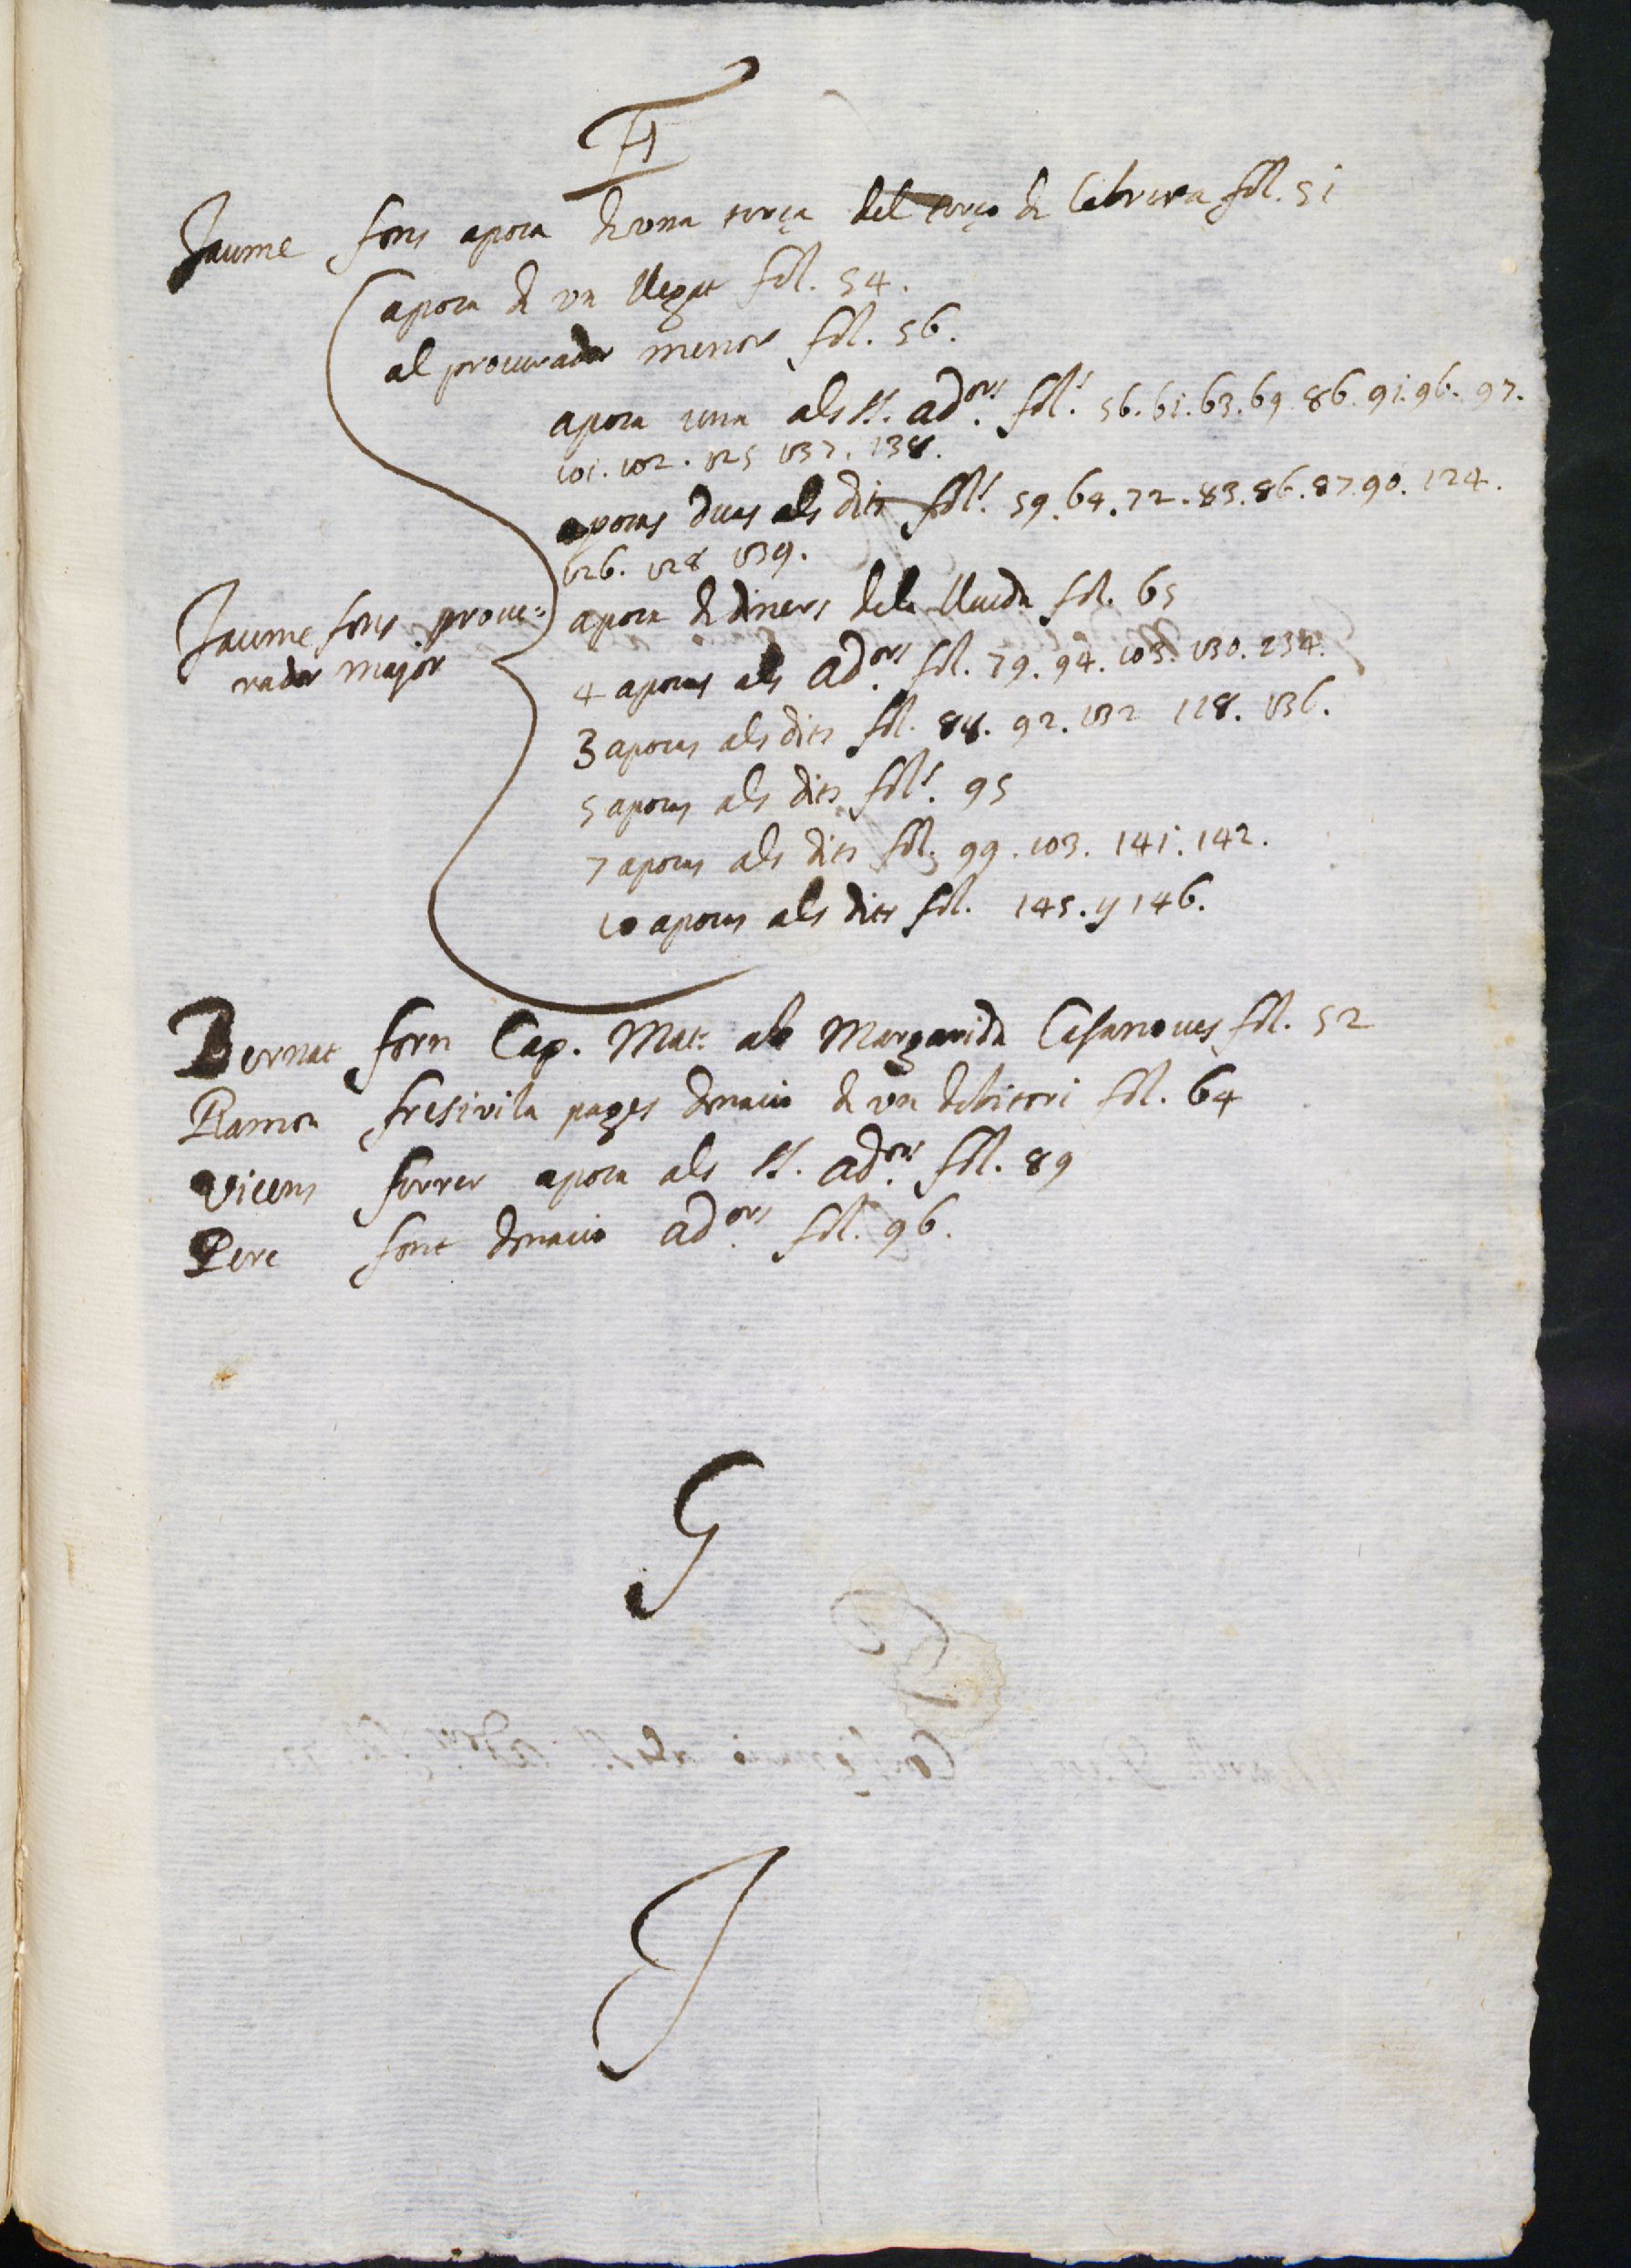 F
Jaume fons apoca de una terça del terço de Cabrera fol. 51
apoca de un llegat fol. 54.
al procurador menor fol. 56.
apoca una als ss. ad.ors fol.s 56. 61. 63. 69. 86. 91. 96. 97.
101. 102. 125 137. 138.
apocas duas als dits fol.s 59. 64. 72. 83. 86. 87. 90. 124.
126. 128 139.
apoca de diners dela lluida fol. 65
Jaume fons procu:
rador major
4 apocas als ad.ors fol. 79. 94. 103. 130. 234.
3 apocas als dits fol. 88. 92. 132 118. 136.
5 apocas als dits fol.s 95
7 apocas als dits fol. 99. 103. 141. 142.
10 apocas als dits fol. 145. y 146.
Bernat forn Cap. Mat: ab Margarida Casanoves fol. 52
Ramon fresivila pages donacio de un debitori fol. 64
Vicens ferrer apoca als ss. ad.ors fol. 89
Pere font donacio ad.ors fol. 96.
G
J